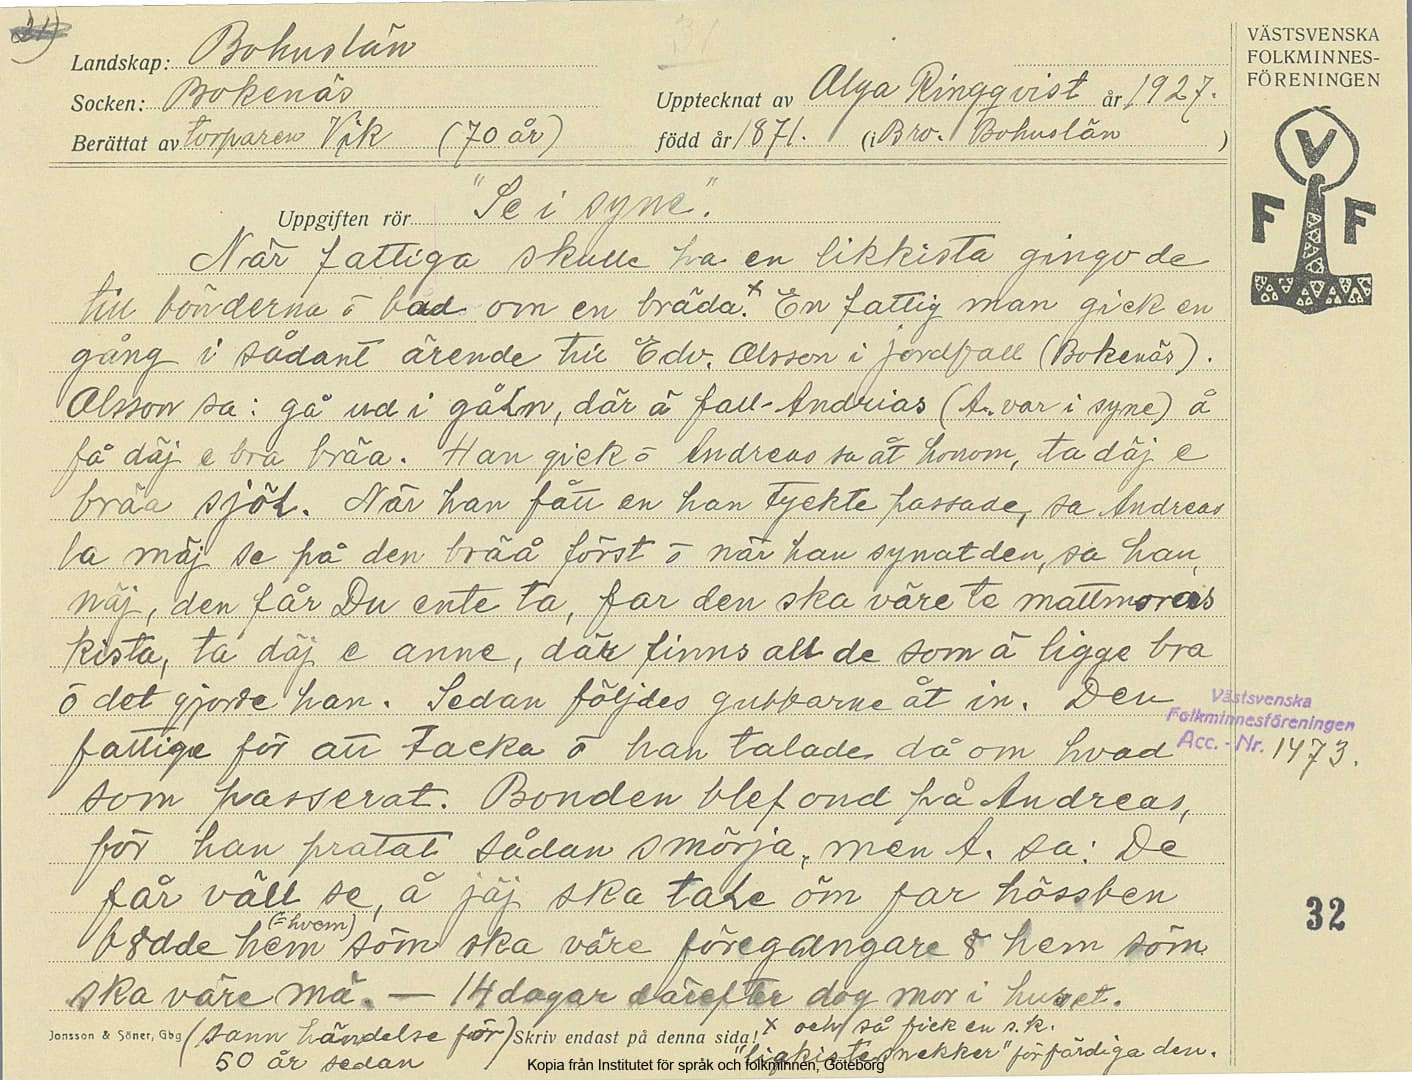 31)
Landskap: Bohuslän
Socken: Bokenäs
Berättat av torparen Vik (70 år)
Upptecknat av Olga Ringqvist år 1927.
född år 1871. (i Bro. Bohuslän )
VÄSTSVENSKA
FOLKMINNES-
FÖRENINGEN
V
F F
Uppgiften rör "Se i syne".
När fattiga skulle ha en likkista gingo de
till bönderna ō bad om en bräda.x En fattig man gick en
gång i sådant ärende till Edv. Olsson i jordfall (Bokenäs).
Olsson sa: gå ud i gåLn, där ä fall-Andrias (A. var i syne) å
få däj e bra bräa. Han gick ō Andreas sa åt honom, ta däj e
bräa sjöL. När han fått en han tyckte passade, sa Andreas
la mäj se på den bräå först ō när han synat den, sa han,
näj, den får Du ente ta, far den ska väre te mattmoras
kista, ta däj e anne, där finns all de som ä ligge bra
ō det gjorde han. Sedan följdes gubbarne åt in. Den
fattige för att tacka ō han talade då om hvad
som passerat. Bonden blef ond på Andreas,
för han pratat sådan smörja, men A. sa: De
får väll se, å jäj ska taLe öm far hössben
(= hvem)
b8dde hem söm ska väre föregangare 8 hem söm
ska väre mä. — 14 dagar därefter dog mor i huset.
Västsvenska
Folkminnesföreningen
Acc. - Nr. 1473.
32
Jonsson & Söner, Gbg (sann händelse för) Skriv endast på denna sida! x och så fick en s.k.
50 år sedan "liqkistesnekker" förfärdiga den.
Kopia från Institutet för språk och folkminnen, Göteborg